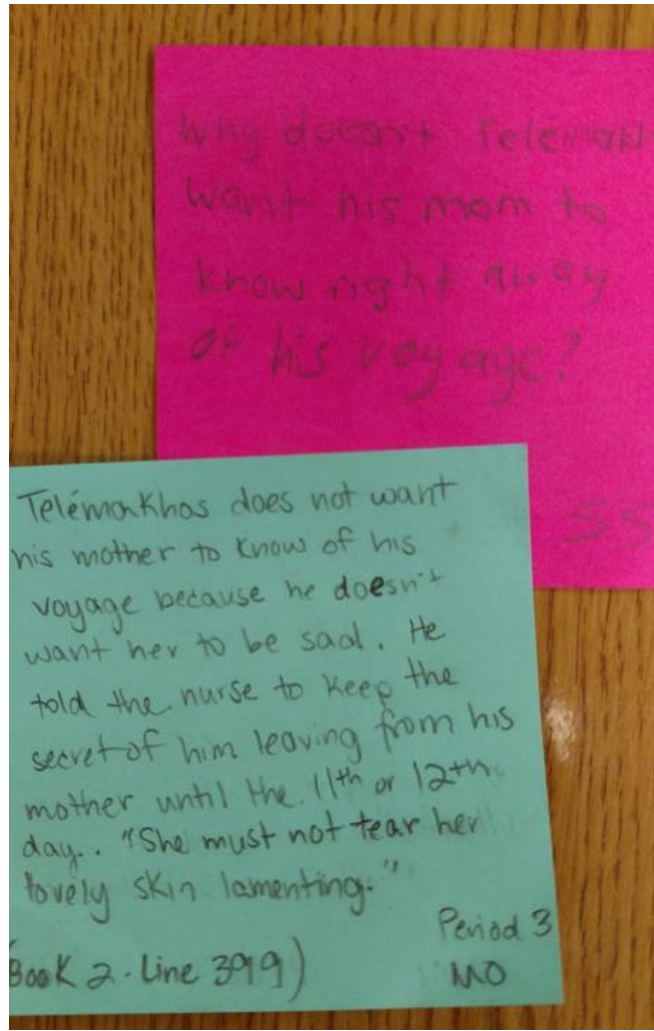 Why doesn't Telemakh
want his mom to
know right away
of his voyage?
SS
Telémakhos does not want
his mother to know of his
voyage because he doesn't
want her to be sad. He
told the nurse to keep the
secret of him leaving from his
mother until the 11th or 12th
day.. "She must not tear her
lovely skin lamenting."
Period 3
(Book 2. Line 399)
MO